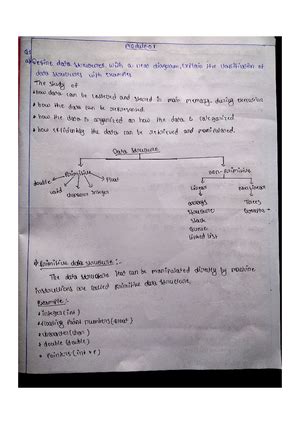 Module-01
Q1
a) Define data structures, with a neat diagram, Explain the classification of
data structures with examples
The study of
how data can be collected and stored in main memory during execution
how the data can be
how the data is organized or how the data is categorized
how efficiently the data can be retrieved and manipulated.
Data structure
Primitive
non-primitive
double
float
void
character
integer
Linear
non linear
arrays
Trees
structure
Stack
Queue
linked list
Primitive data structure :-
The data structure that can be manipulated directly by machine
instructions are called primitive data structure.
Example :-
integer (int)
floating point numbers (float)
character (char)
double (double)
pointers (int *